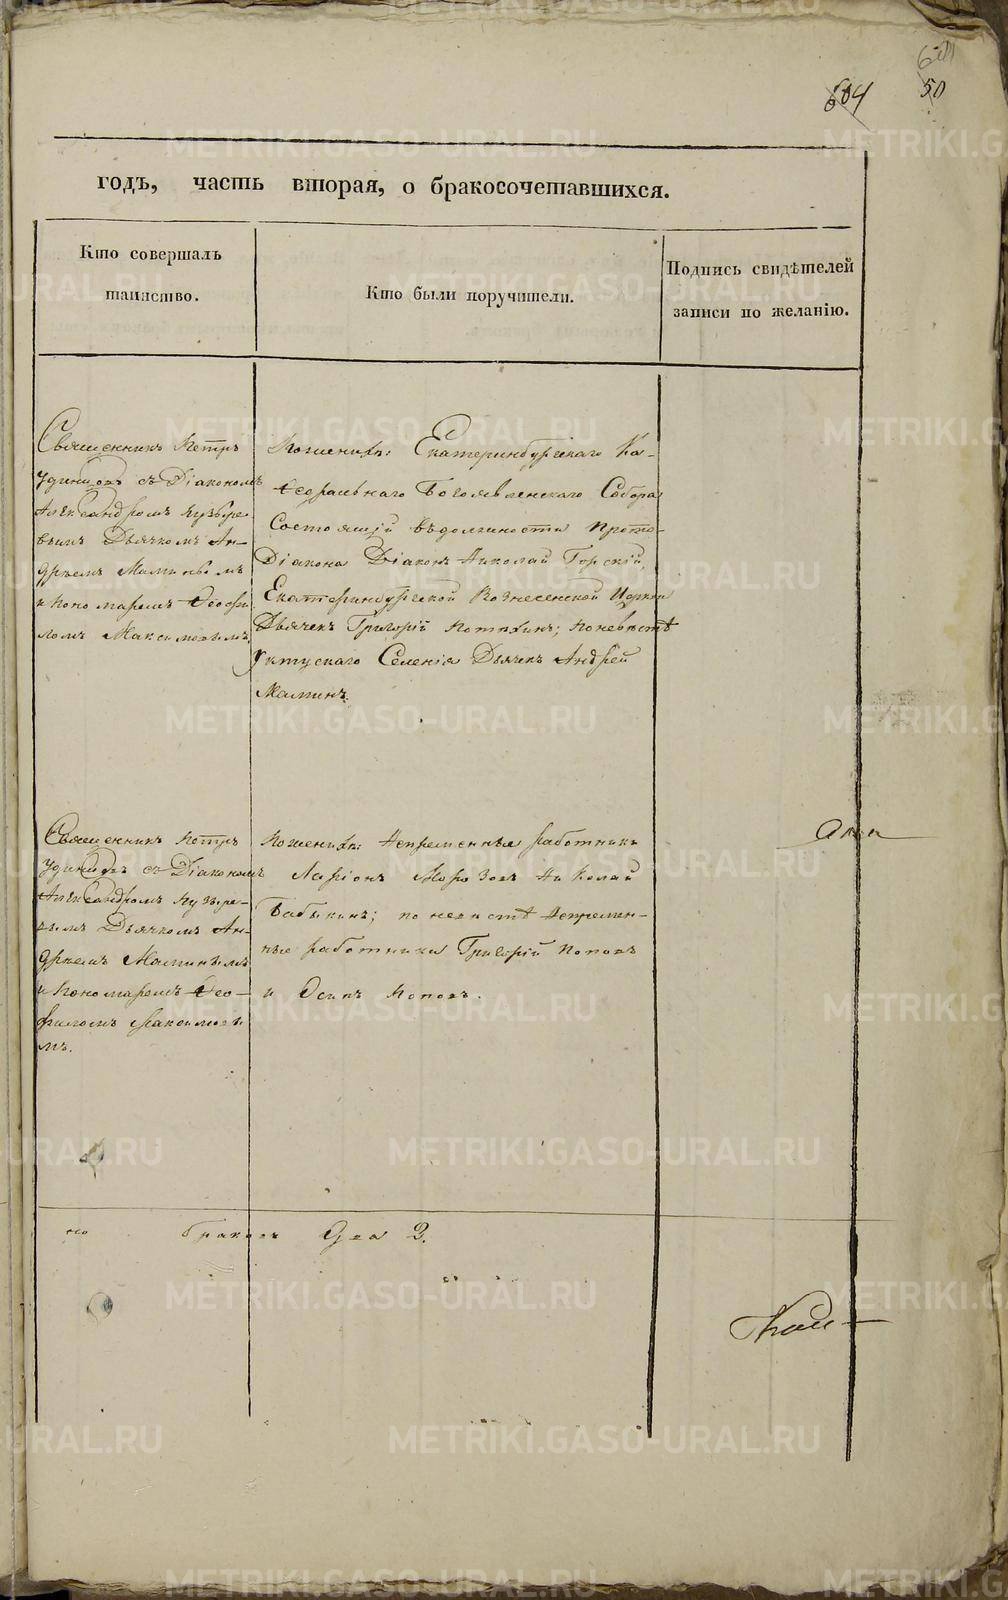 604
50
годъ, часть вторая, о бракосочетавшихся.
Кто совершалъ
таинство.
Кто были поручители.
Подпись свидѣтелей
записи по желанію.
Священникъ Петръ
Удинцовъ съ Діакономъ
Александромъ Кузыре-
вымъ Дьячкомъ Ан-
дреемъ Маминымъ
и Пономаремъ Ѳеофи
ломъ Максимовымъ
По женихѣ: Екатеринбургскаго Ка-
ѳедральнаго Богоявленскаго Собора
Состоящій въ должности Прото-
Діакона Діаконъ Николай Горскій,
Екатеринбургской Вознесенской Церкви
Дьячекъ Григорій Поташинъ; по невѣстѣ
Уктускаго Селенія Дьячекъ Андрей
Маминъ.
Священникъ Петръ
Удинцовъ съ Діакономъ
Александромъ Кузыре-
вымъ Дьячкомъ Ан-
дреемъ Маминымъ
и Пономаремъ Ѳео-
филомъ Максимовы
мъ.
По женихѣ: Непременные работники
Ларіонъ Морозовъ Николай
Бабыкинъ; по невѣстѣ Непремен-
ные работники Григорій Поповъ
и Осипъ Поповъ.
браковъ Два 2.
METRIKI.GASO-URAL.RU